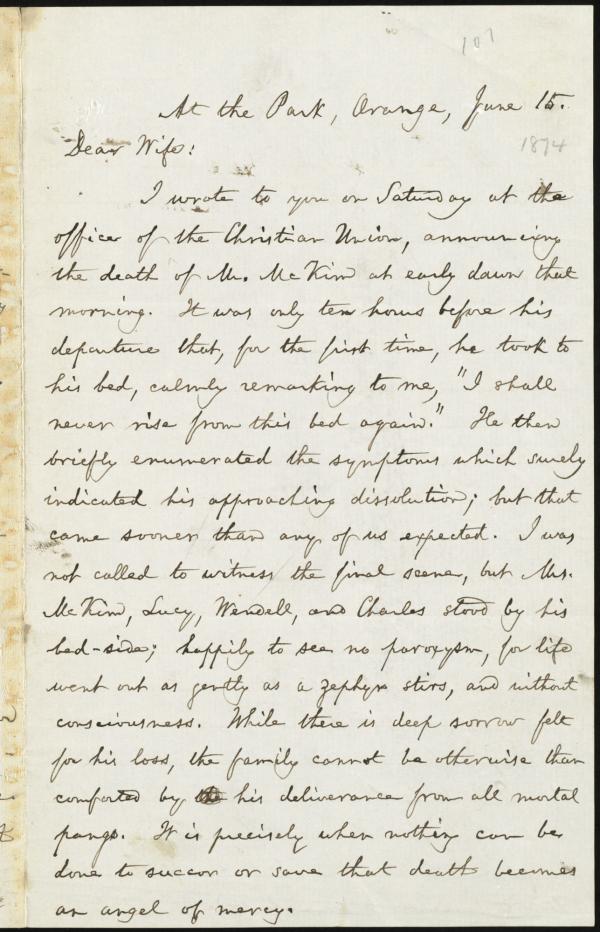 107
At the Park, Orange, June 15.
1874
Dear Wife:
I wrote to you on Saturday at the
office of the Christian Union, announcing
the death of Mr. McKim at early dawn that
morning. It was only ten hours before his
departure that, for the first time, he took to
his bed, calmly remarking to me, "I shall
never rise from this bed again." He then
briefly enumerated the symptoms which surely
indicated his approaching dissolution; but that
came sooner than any of us expected. I was
not called to witness the final scene, but Mrs.
McKim, Lucy, Wendell, and Charles stood by his
bed-side; happily to see no paroxysm, for life
went out as gently as a zephyr stirs, and without
consciousness. While there is deep sorrow felt
for his loss, the family cannot be otherwise than
comforted by his deliverance from all mortal
pangs. It is precisely when nothing can be
done to succor or save that death becomes
an angel of mercy.